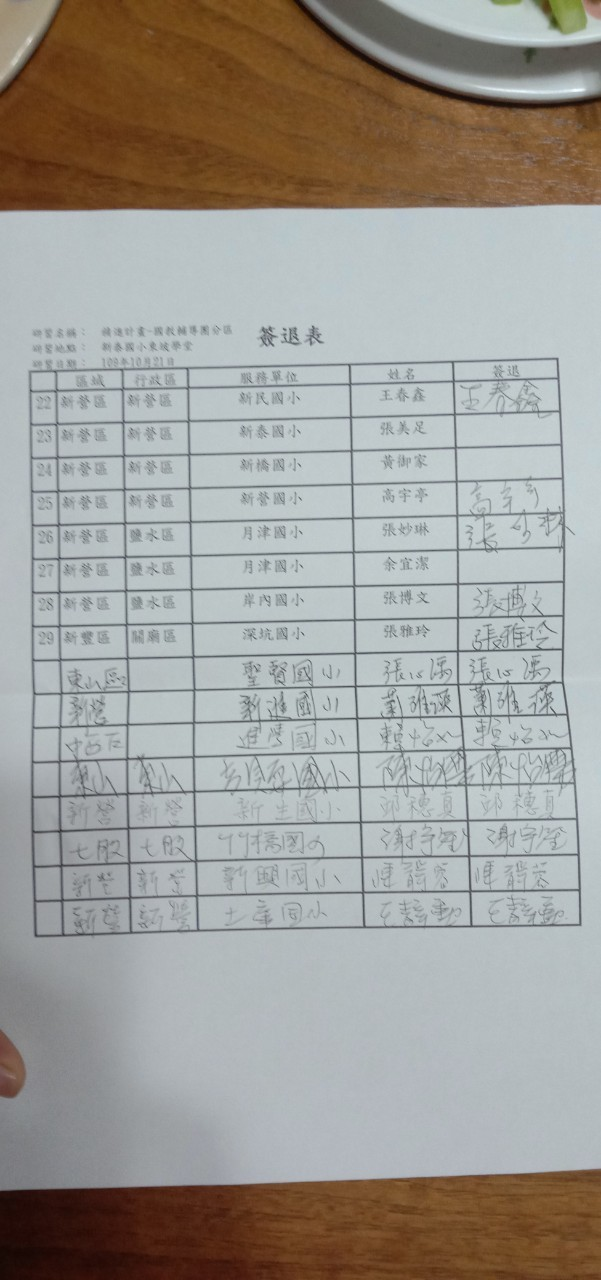 研習名稱： 精進計畫-國教輔導團分區
簽退表
研習地點： 新泰國小東坡學堂
研習日期： 109年10月21日
區域 行政區 服務單位 姓名 簽退
22 新營區 新營區 新民國小 王春鑫 王春鑫
23 新營區 新營區 新泰國小 張美足
24 新營區 新營區 新橋國小 黃御家
25 新營區 新營區 新營國小 高宇亭 高宇亭
26 新營區 鹽水區 月津國小 張妙琳 張妙琳
27 新營區 鹽水區 月津國小 余宜潔
28 新營區 鹽水區 岸內國小 張博文 張博文
29 新豐區 關廟區 深坑國小 張雅玲 張雅玲
東山區 聖賢國小 張心馮 張心馮
新營 新進國小
進學國小
東山 東山 國小
新營 新營 新生國小 邱穗真 邱穗真
七股 七股 竹橋國小
新營 新營 新興國小
新營 新營 土庫國小